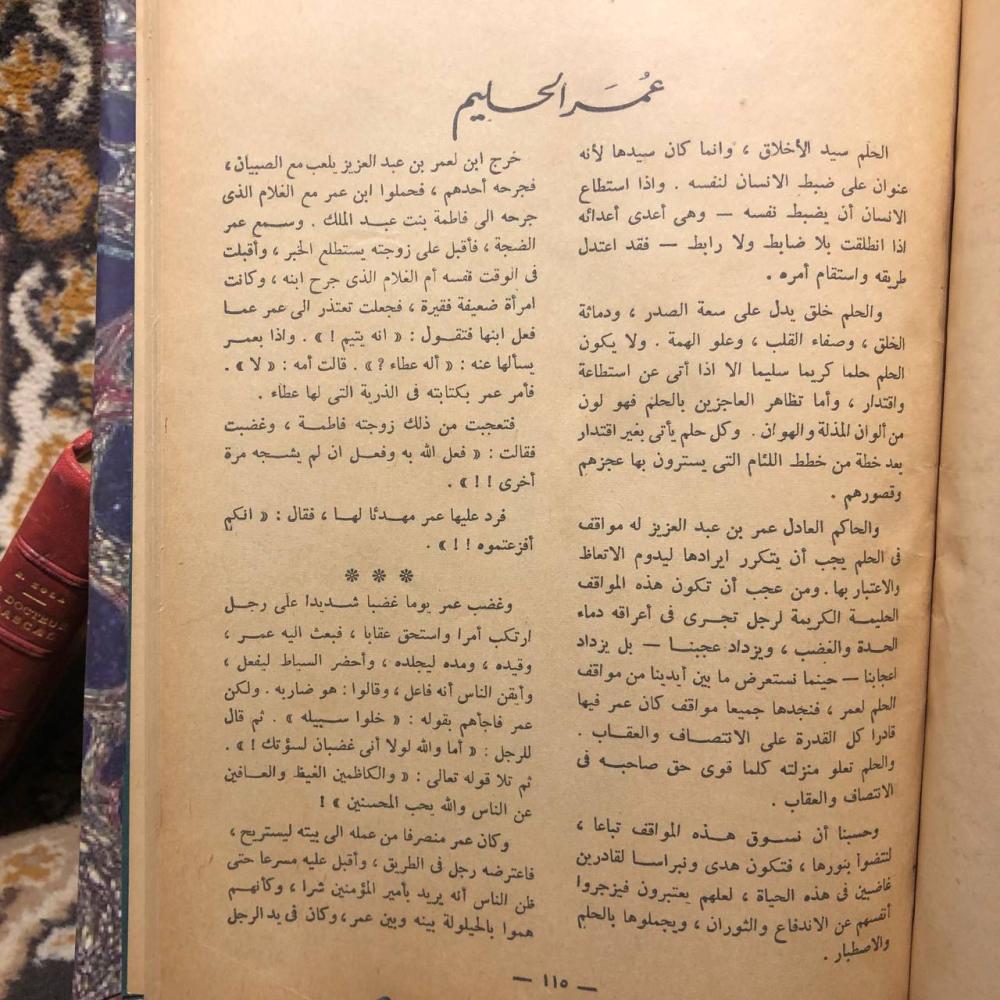 عُمَر الحليم
الحلم سيد الأخلاق ، وانما كان سيدها لأنه
عنوان على ضبط الانسان لنفسه . واذا استطاع
الانسان أن يضبط نفسه — وهى أعدى أعدائه
اذا انطلقت بلا ضابط ولا رابط — فقد اعتدل
طريقه واستقام أمره .
والحلم خلق يدل على سعة الصدر ، ودماثة
الخلق ، وصفاء القلب ، وعلو الهمة . ولا يكون
الحلم حلما كريما سليما الا اذا أتى عن استطاعة
واقتدار ، وأما تظاهر العاجزين بالحلم فهو لون
من ألوان المذلة والهوان . وكل حلم يأتى بغير اقتدار
يعد خطة من خطط اللئام التى يسترون بها عجزهم
وقصورهم .
والحاكم العادل عمر بن عبد العزيز له مواقف
فى الحلم يجب أن يتكرر ايرادها ليدوم الاتعاظ
والاعتبار بها . ومن عجب أن تكون هذه المواقف
الحليمة الكريمة لرجل تجرى فى أعراقه دماء
الحدة والغضب ، ويزداد عجبنا — بل يزداد
اعجابنا — حينما نستعرض ما بين أيدينا من مواقف
الحلم لعمر ، فنجدها جميعا مواقف كان عمر فيها
قادرا كل القدرة على الانتصاف والعقاب .
والحلم تعلو منزلته كلما قوى حق صاحبه فى
الانتصاف والعقاب .
وحسبنا أن نسوق هذه المواقف تباعا ،
لنتضوأ بنورها ، فتكون هدى ونبراسا لقادرين
غاضبين فى هذه الحياة ، لعلهم يعتبرون فيزجروا
أنفسهم عن الاندفاع والثوران ، ويجملوها بالحلم
والاصطبار .
خرج ابن لعمر بن عبد العزيز يلعب مع الصبيان ،
فجرحه أحدهم ، فحملوا ابن عمر مع الغلام الذى
جرحه الى فاطمة بنت عبد الملك . وسمع عمر
الضجة ، فأقبل على زوجته يستطلع الخبر ، وأقبلت
فى الوقت نفسه أم الغلام الذى جرح ابنه ، وكانت
امرأة ضعيفة فقيرة ، فجعلت تعتذر الى عمر عما
فعل ابنها فتقول : « انه يتيم ! » . واذا بعمر
يسألها عنه : « أله عطاء ? » . قالت أمه : « لا » .
فأمر عمر بكتابته فى الذرية التى لها عطاء .
فتعجبت من ذلك زوجته فاطمة ، وغضبت
فقالت : « فعل الله به وفعل ان لم يشجه مرة
أخرى ! ! » .
فرد عليها عمر مهدئا لها ، فقال : « انكم
أفزعتموه ! ! » .
* * *
وغضب عمر يوما غضبا شديدا على رجل
ارتكب أمرا واستحق عقابا ، فبعث اليه عمر ،
وقيده ، ومده ليجلده ، وأحضر السياط ليفعل ،
وأيقن الناس أنه فاعل ، وقالوا : هو ضاربه . ولكن
عمر فاجأهم بقوله : « خلوا سبيله » . ثم قال
للرجل : « أما والله لولا أنى غضبان لسؤتك ! » .
ثم تلا قوله تعالى : « والكاظمين الغيظ والعافين
عن الناس والله يحب المحسنين » !
وكان عمر منصرفا من عمله الى بيته ليستريح ،
فاعترضه رجل فى الطريق ، وأقبل عليه مسرعا حتى
ظن الناس أنه يريد بأمير المؤمنين شرا ، وكأنهم
هموا بالحيلولة بينه وبين عمر ، وكان فى يد الرجل
— ١١٥ —
E. ZOLA
DOCTEUR
PASCAL